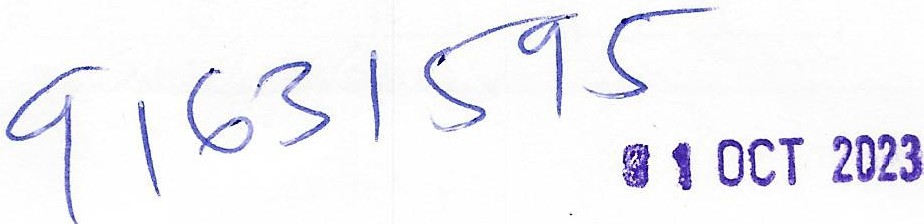 91631595
01 OCT 2023